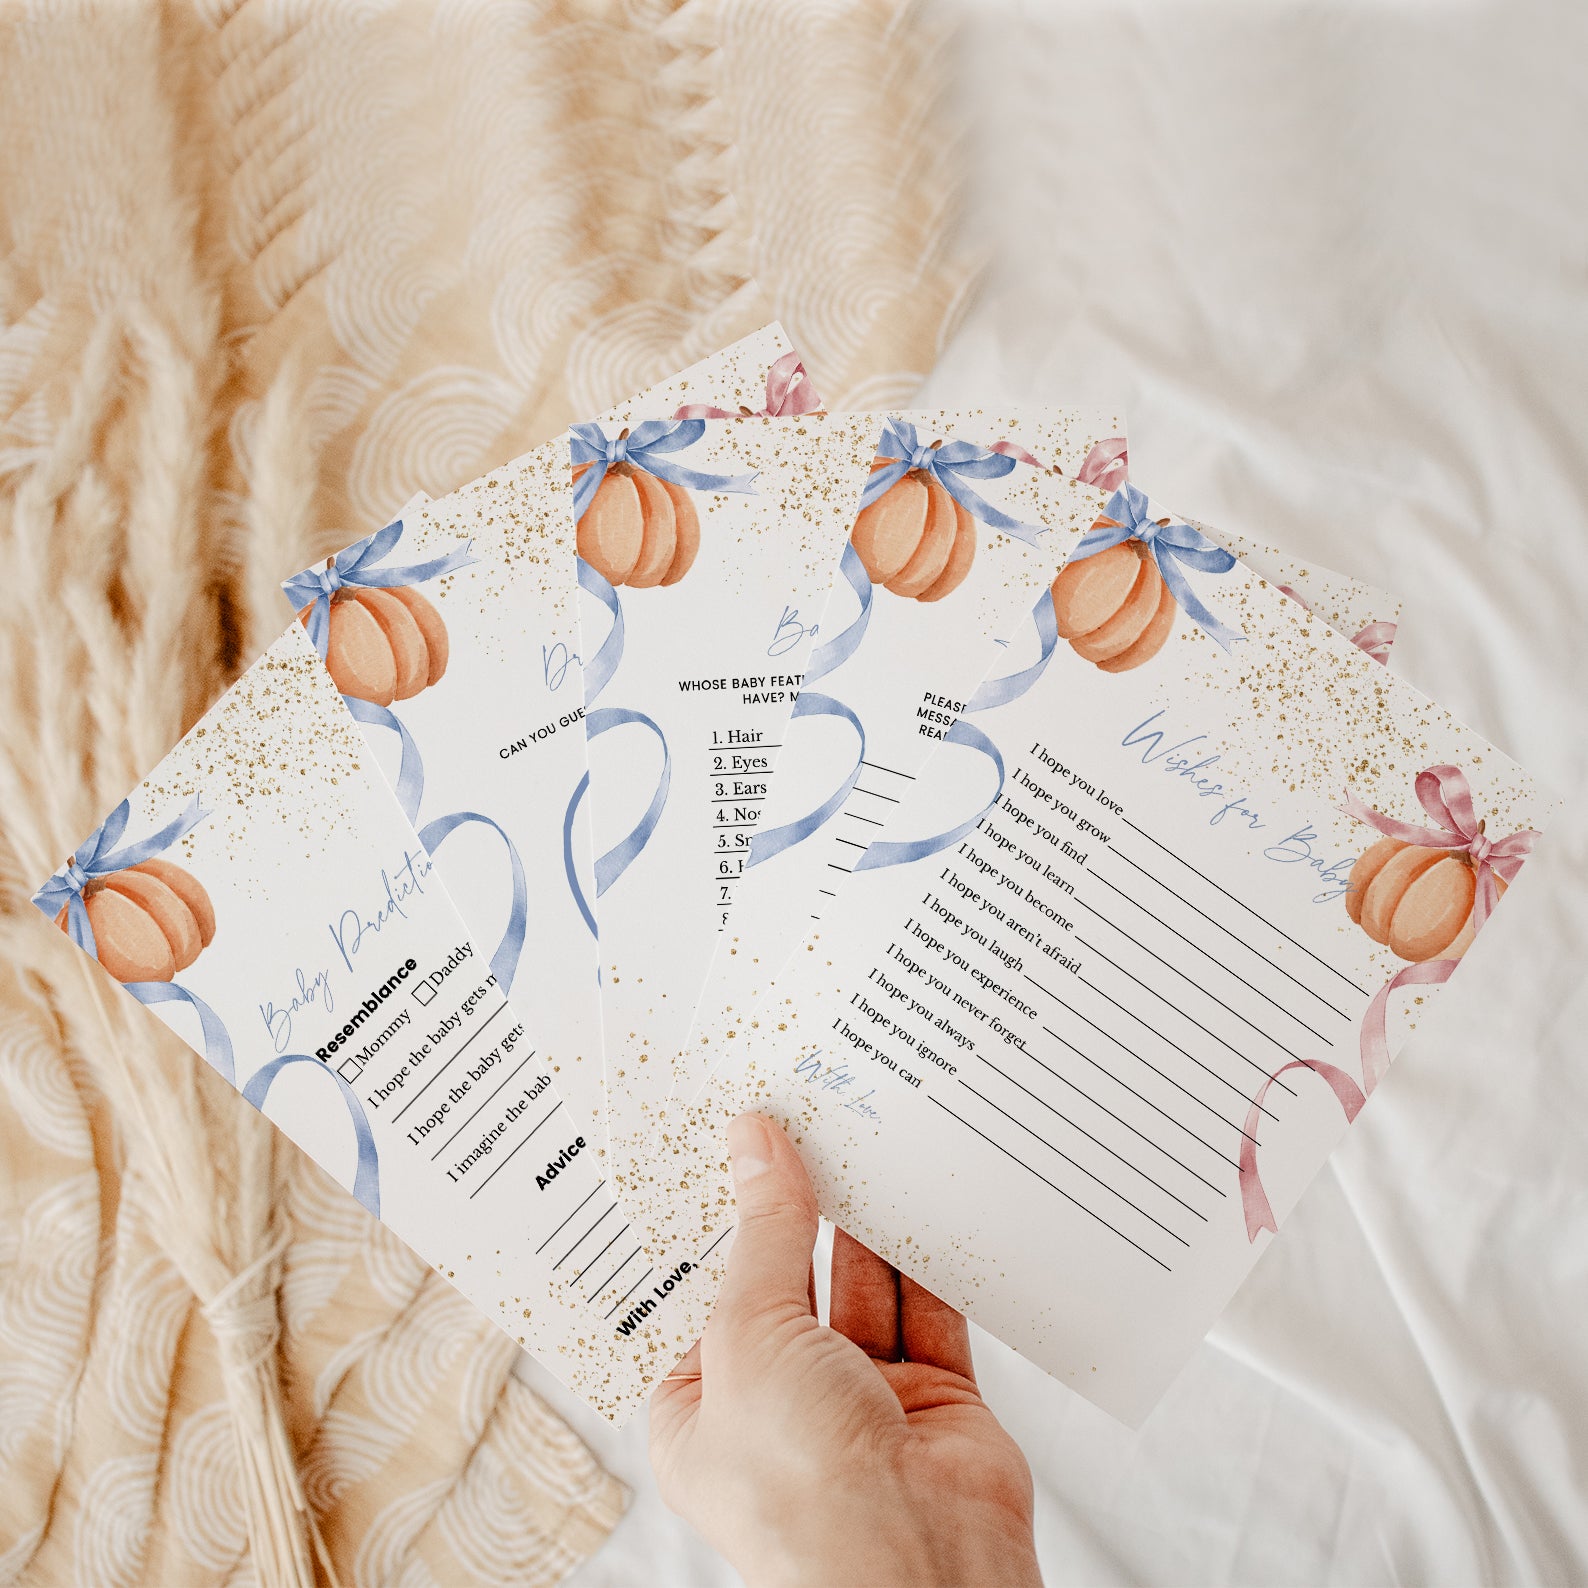 Baby
Resemblance
Mommy Daddy
I hope the baby gets
I hope the baby gets
I imagine the
Advice
With Love,
CAN YOU
WHOSE BABY
HAVE?
1. Hair
2. Eyes
3. Ears
4.
5.
6.
7.
Wishes for Baby
I hope you love
I hope you grow
I hope you find
I hope you learn
I hope you become
I hope you aren't afraid
I hope you laugh
I hope you experience
I hope you never forget
I hope you always
I hope you ignore
I hope you can
With Love,